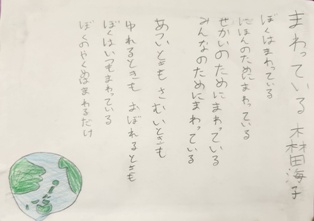 まわっている 森田海子
ぼくはまわっている
にほんのためにまわっている
せかいのためにまわっている
みんなのためにまわっている
あついときも さむいときも
ゆれるときも おばれるときも
ぼくはいつもまわっている
ぼくのやくめはまわるだけ